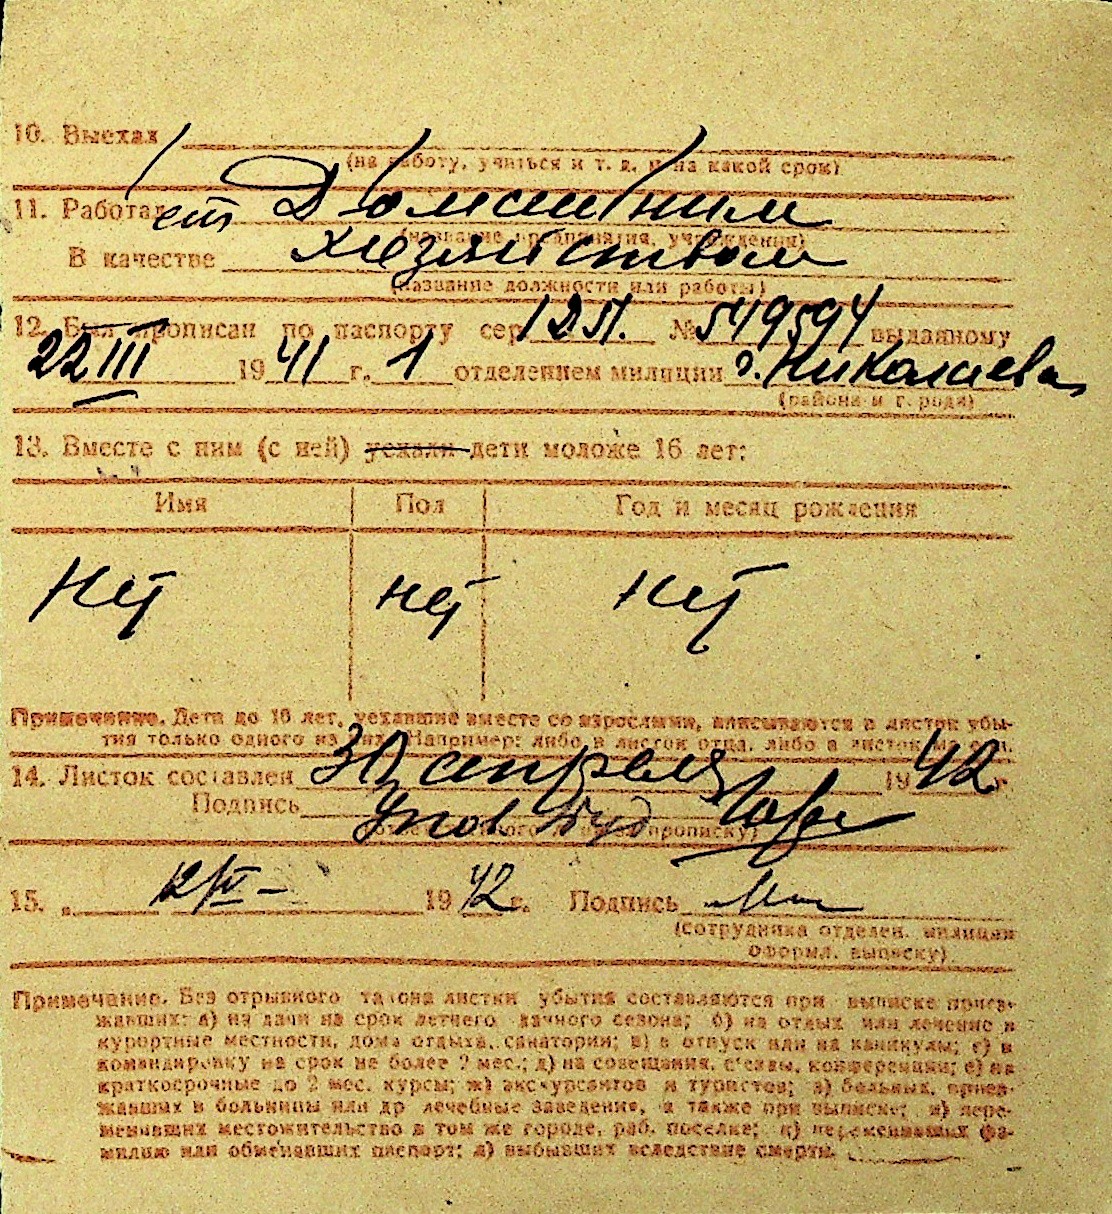 10. Выехал
(на работу, учиться и т. д. и на какой срок)
11. Работает Домашним
(название предприятия, учреждения)
В качестве хозяйством
(название должности или работы)
12. Был прописан по паспорту сер. № 549594 выданному
22 III 1941 г. 1 отделением милиции г. Николаева
(района и города)
13. Вместе с ним (с ней) уехали дети моложе 16 лет:
Имя Пол Год и месяц рождения
Нет нет нет
Примечание. Дети до 16 лет, уехавшие вместе со взрослыми, вписываются в листок убы-
тия только одного из них. Например: либо в листок отца, либо в листок матери.
14. Листок составлен 30 апреля 1942 г.
Подпись
прописку)
15. „ 12/IV – 1942 г. Подпись
(сотрудника отделен. милиции
оформл. выписку)
Примечание. Без отрывного талона листки убытия составляются при выписке приез-
жавших: а) на дачи на срок летнего дачного сезона; б) на отдых или лечение в
курортные местности, дома отдыха, санатории; в) в отпуск или на каникулы; г) в
командировку на срок не более 2 мес.; д) на совещания, съезды, конференции; е) на
краткосрочные до 2 мес. курсы; ж) экскурсантов и туристов; з) больных, приез-
жавших в больницы или др лечебные заведения, а также при выписке; и) пере-
менивших местожительство в том же городе, раб. поселке; к) переменивших фа-
милию или обменявших паспорт; л) выбывших вследствие смерти.